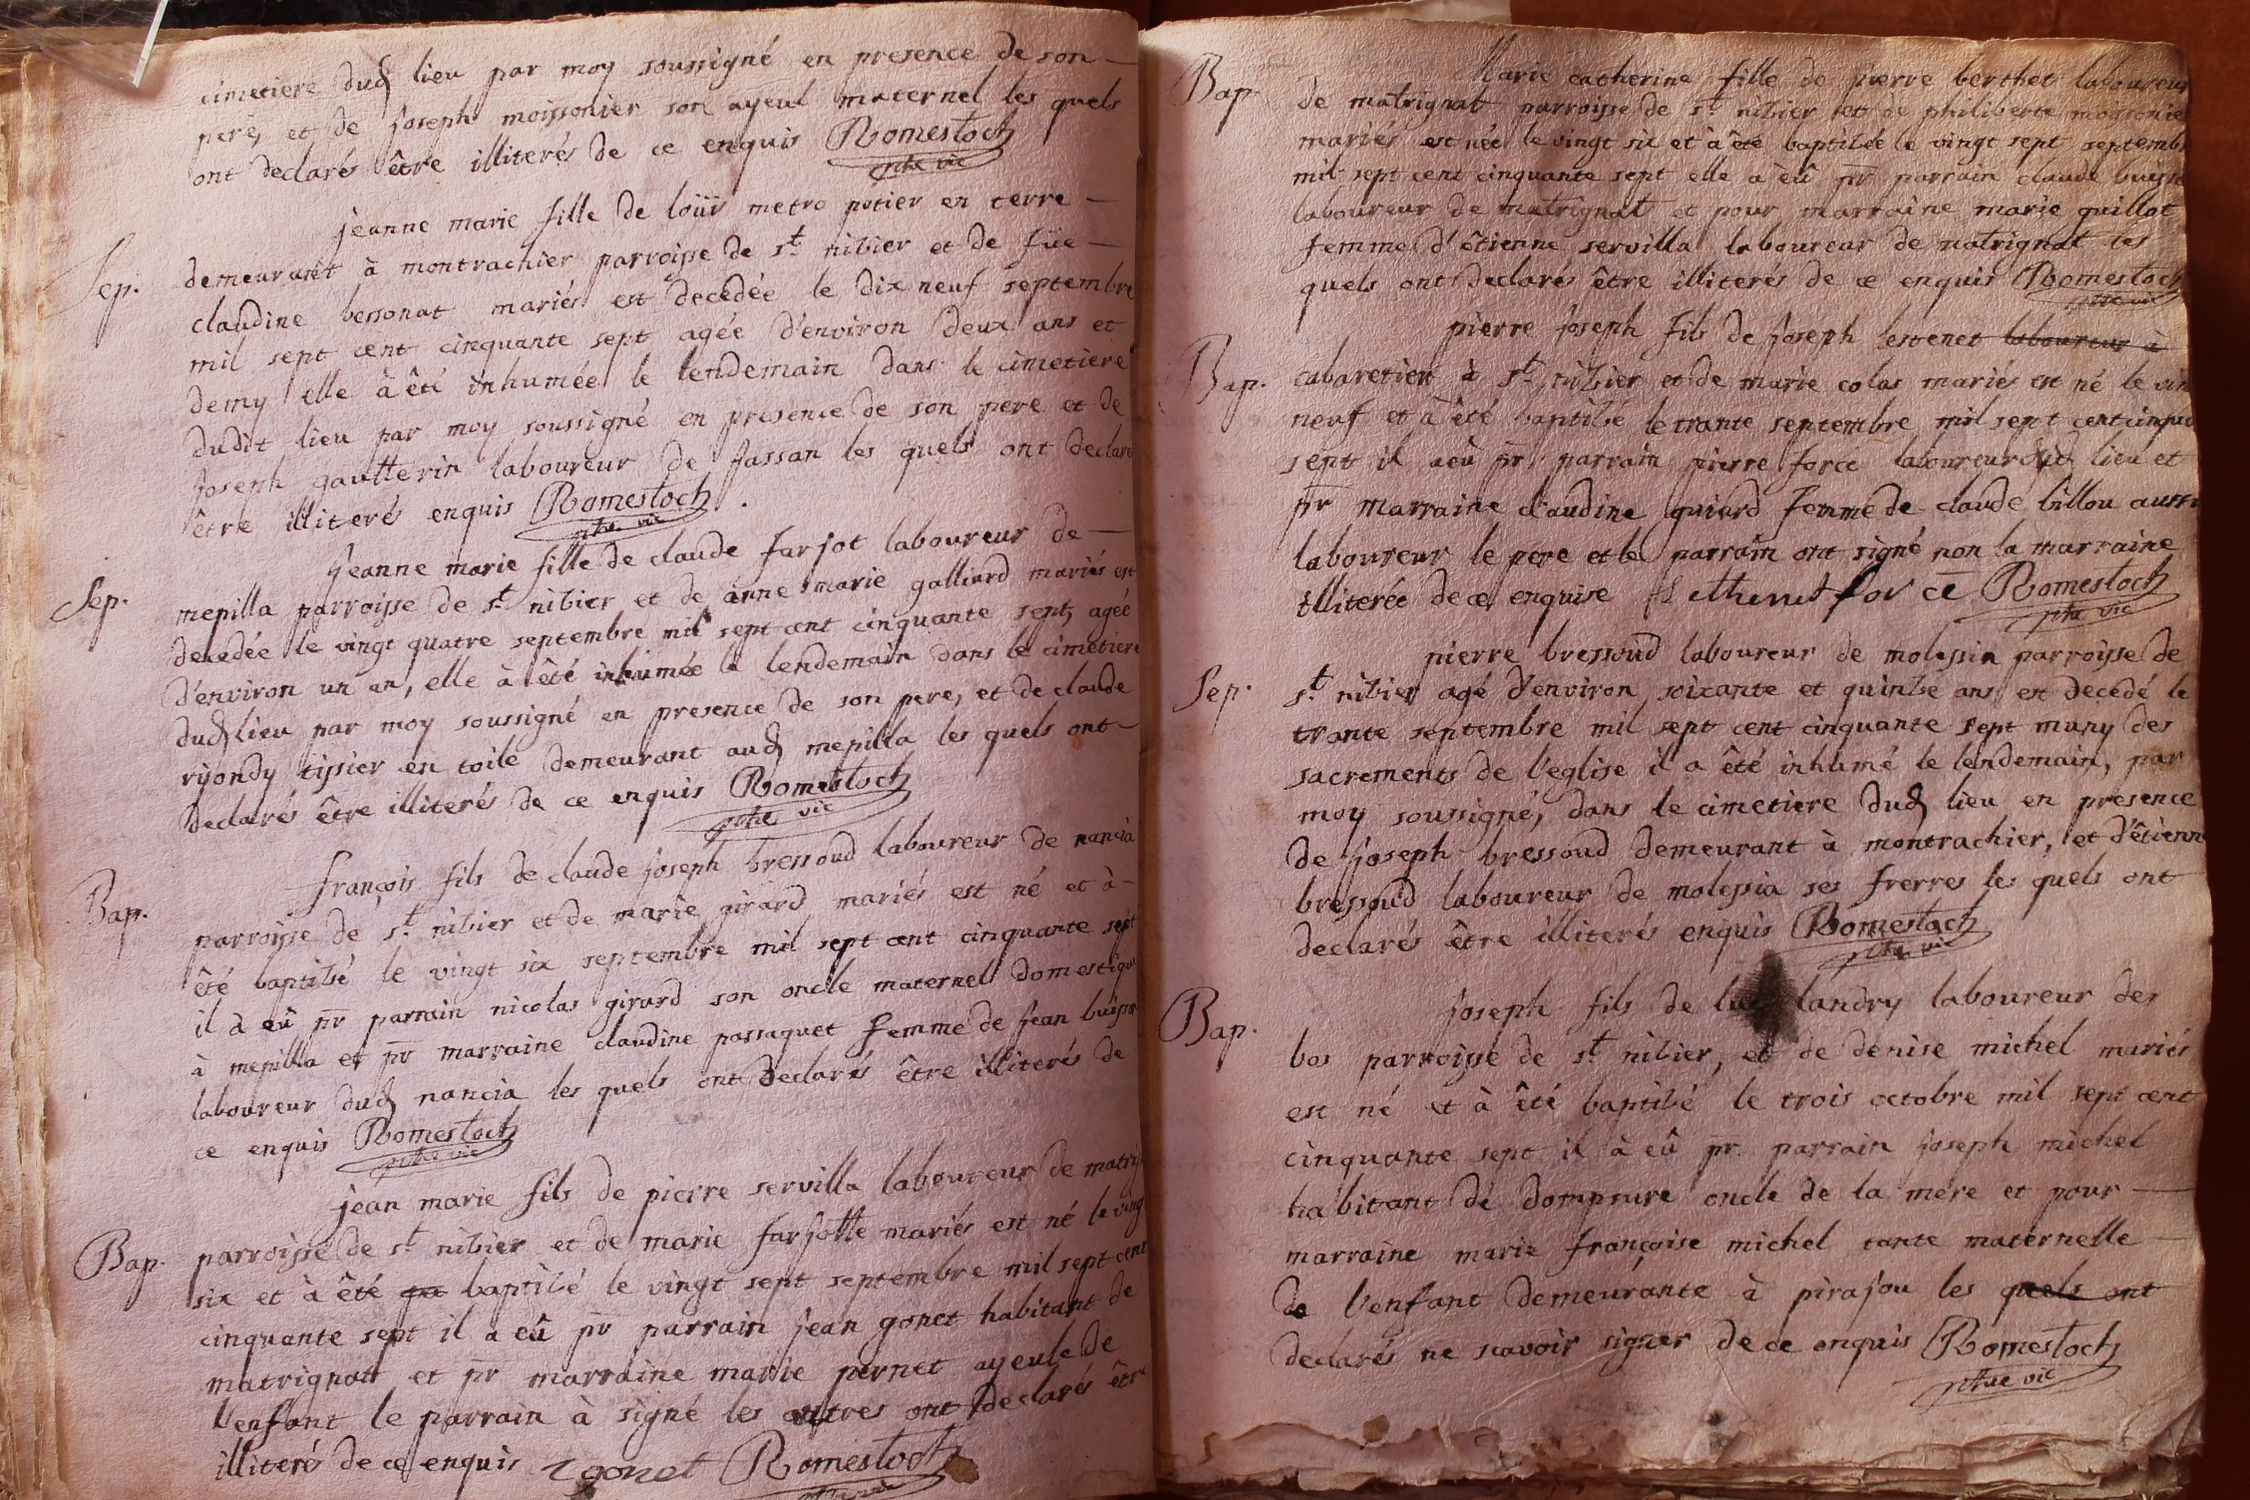 cimetiere dud lieu par moy soussigné en presence de son
pere, et de joseph moissonier son ayeul maternel les quels
ont declarés être illiterés de ce enquis Romestoch
ptre vic
jeanne marie fille de loüis metro potier en terre
Sep. demeurant à montrachier parroisse de st nibier et de füe
claudine bessonat mariés est decedée le dix neuf septembre
mil sept cent cinquante sept agée d'environ deux ans et
demy elle à été inhumée le lendemain dans le cimetiere
dudit lieu par moy soussigné en presence de son pere et de
joseph gautterin laboureur de jassan les quels ont declaré
être illiterés enquis Romestoch
ptre vic
jeanne marie fille de claude farjot laboureur de
Sep. mepilla parroisse de st nibier et de anne marie galliard mariés est
decedée le vingt quatre septembre mil sept cent cinquante sept agée
d'environ un an, elle à été inhumée le lendemain dans le cimetiere
dud lieu par moy soussigné en presence de son pere, et de claude
ryondy tissier en toile demeurant aud mepilla les quels ont
declarés être illiterés de ce enquis Romestoch
ptre vic
françois fils de claude joseph bressoud laboureur de nancia
Bap. parroisse de st nibier et de marie girard mariés est né et à
été baptisé le vingt six septembre mil sept cent cinquante sept
il à eû pr parrain nicolas girard son oncle maternel domestique
à mepilla et pr marraine claudine passaquet femme de jean
laboureur dud nancia les quels ont declarés être illiterés de
ce enquis Romestoch
ptre vic
jean marie fils de pierre servilla laboureur de
Bap. parroisse de st nibier et de marie farjotte mariés est né le
six et à été baptisé le vingt sept septembre mil sept cent
cinquante sept il a eû pr parrain jean gonet habitant de
matrignat et pr marraine marie pernet ayeule de
l'enfant le parrain à signé les autres ont declarés être
illiterés de ce enquis gonet Romestoch
ptre vic
Marie catherine fille de pierre berthet laboureur
Bap. de matrignat parroisse de st nibier et de philiberte
mariés est née le vingt six et à été baptisée le vingt sept
mil sept cent cinquante sept elle à eû pr parrain claude
laboureur de matrignat et pour marraine marie guillot
femme d'étienne servilla laboureur de matrignat les
quels ont declarés être illiterés de ce enquis Romestoch
ptre vic
pierre joseph fils de joseph lestenet laboureur à
Bap. cabaretier à st nibier et de marie colas mariés est né le
neuf et à été baptisé le trante septembre mil sept cent
sept il a eû pr parrain pierre force laboureur dud lieu et
pr marraine claudine guiard femme de claude billou aussi
laboureur le pere et le parrain ont signé non la marraine
illiterée de ce enquise for ce Romestoch
ptre vic
pierre bressoud laboureur de molessia parroisse de
Sep. st nibier agé d'environ soixante et quinse ans est decedé le
trante septembre mil sept cent cinquante sept muny des
sacrements de l'eglise il a été inhumé le lendemain, par
moy soussigné, dans le cimetiere dud lieu en presence
de joseph bressoud demeurant à montrachier, et d'étienne
bressoud laboureur de molessia ses frerres les quels ont
declarés être illiterés enquis Romestoch
ptre vic
joseph fils de landry laboureur des
Bap. bos parroisse de st nibier, et de denise michel mariés
est né et à été baptisé le trois octobre mil sept cent
cinquante sept il à eû pr parrain joseph michel
habitant de dompsure oncle de la mere et pour
marraine marie françoise michel tante maternelle
de l'enfant demeurante à pirajou les quels ont
declarés ne scavoir signer de ce enquis Romestoch
ptre vic